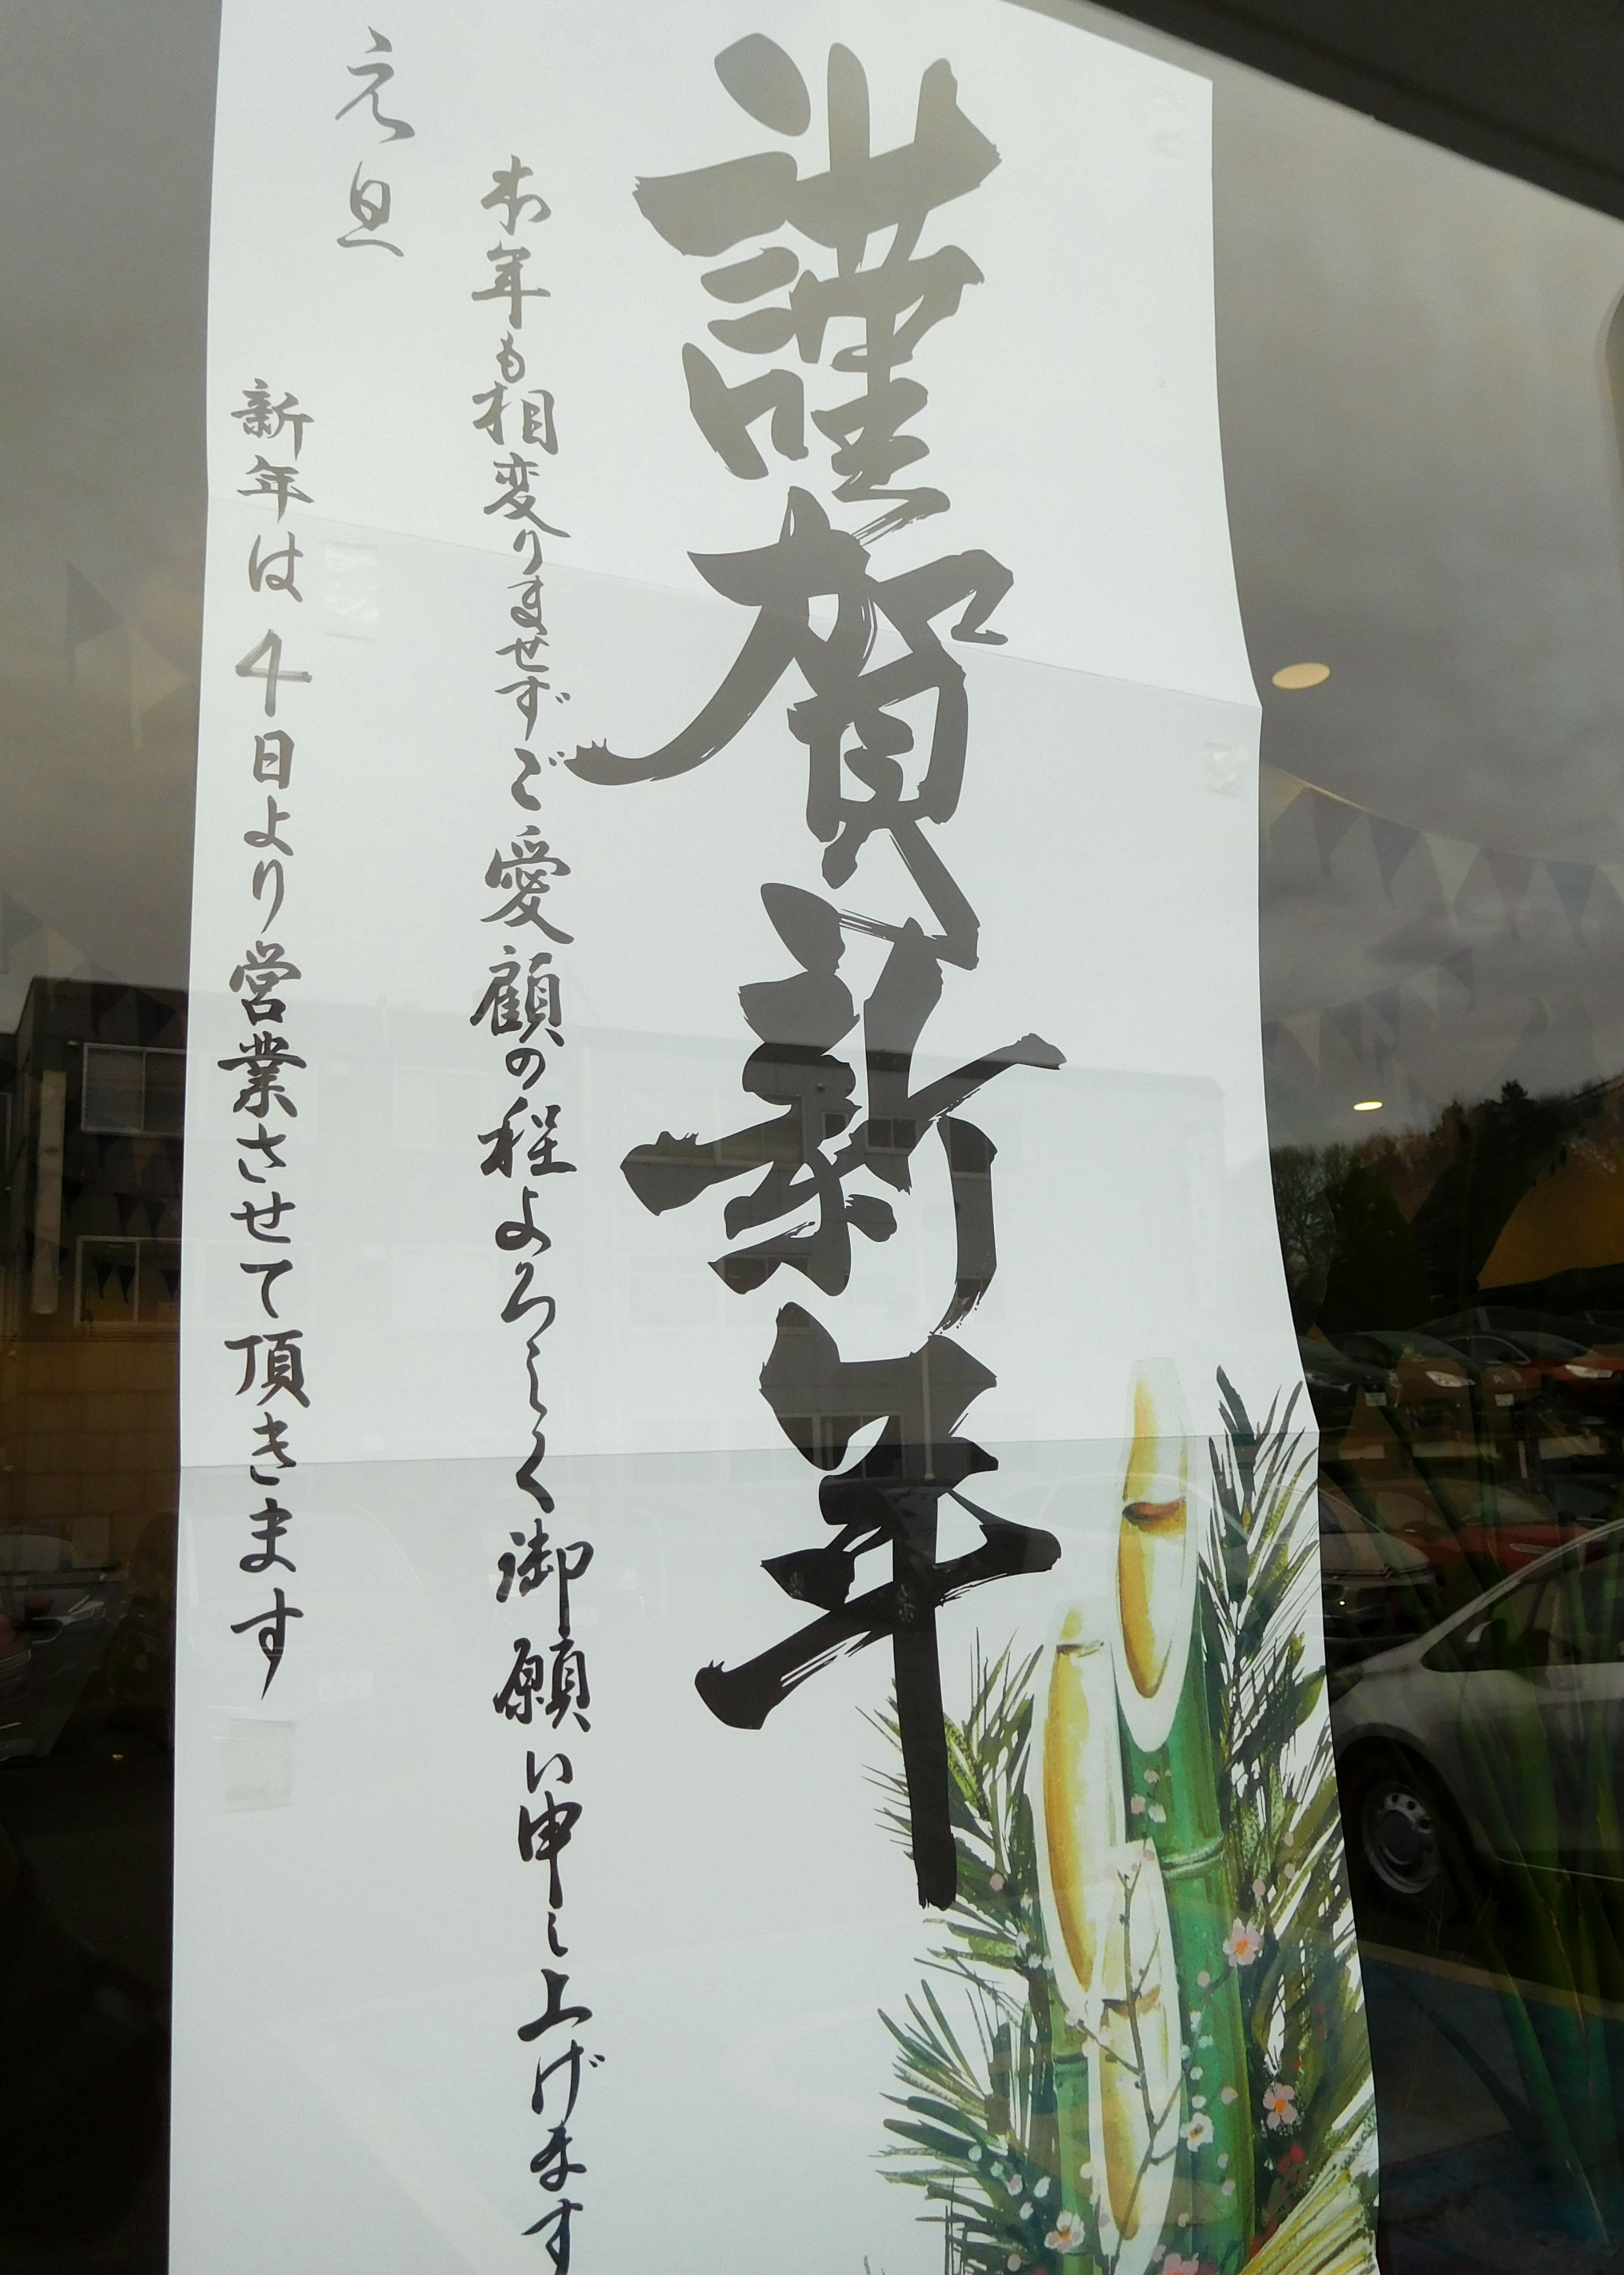 謹賀新年
来年も相変りませずご愛顧の程よろしく御願い申し上げます
元旦
新年は4日より営業させて頂きます